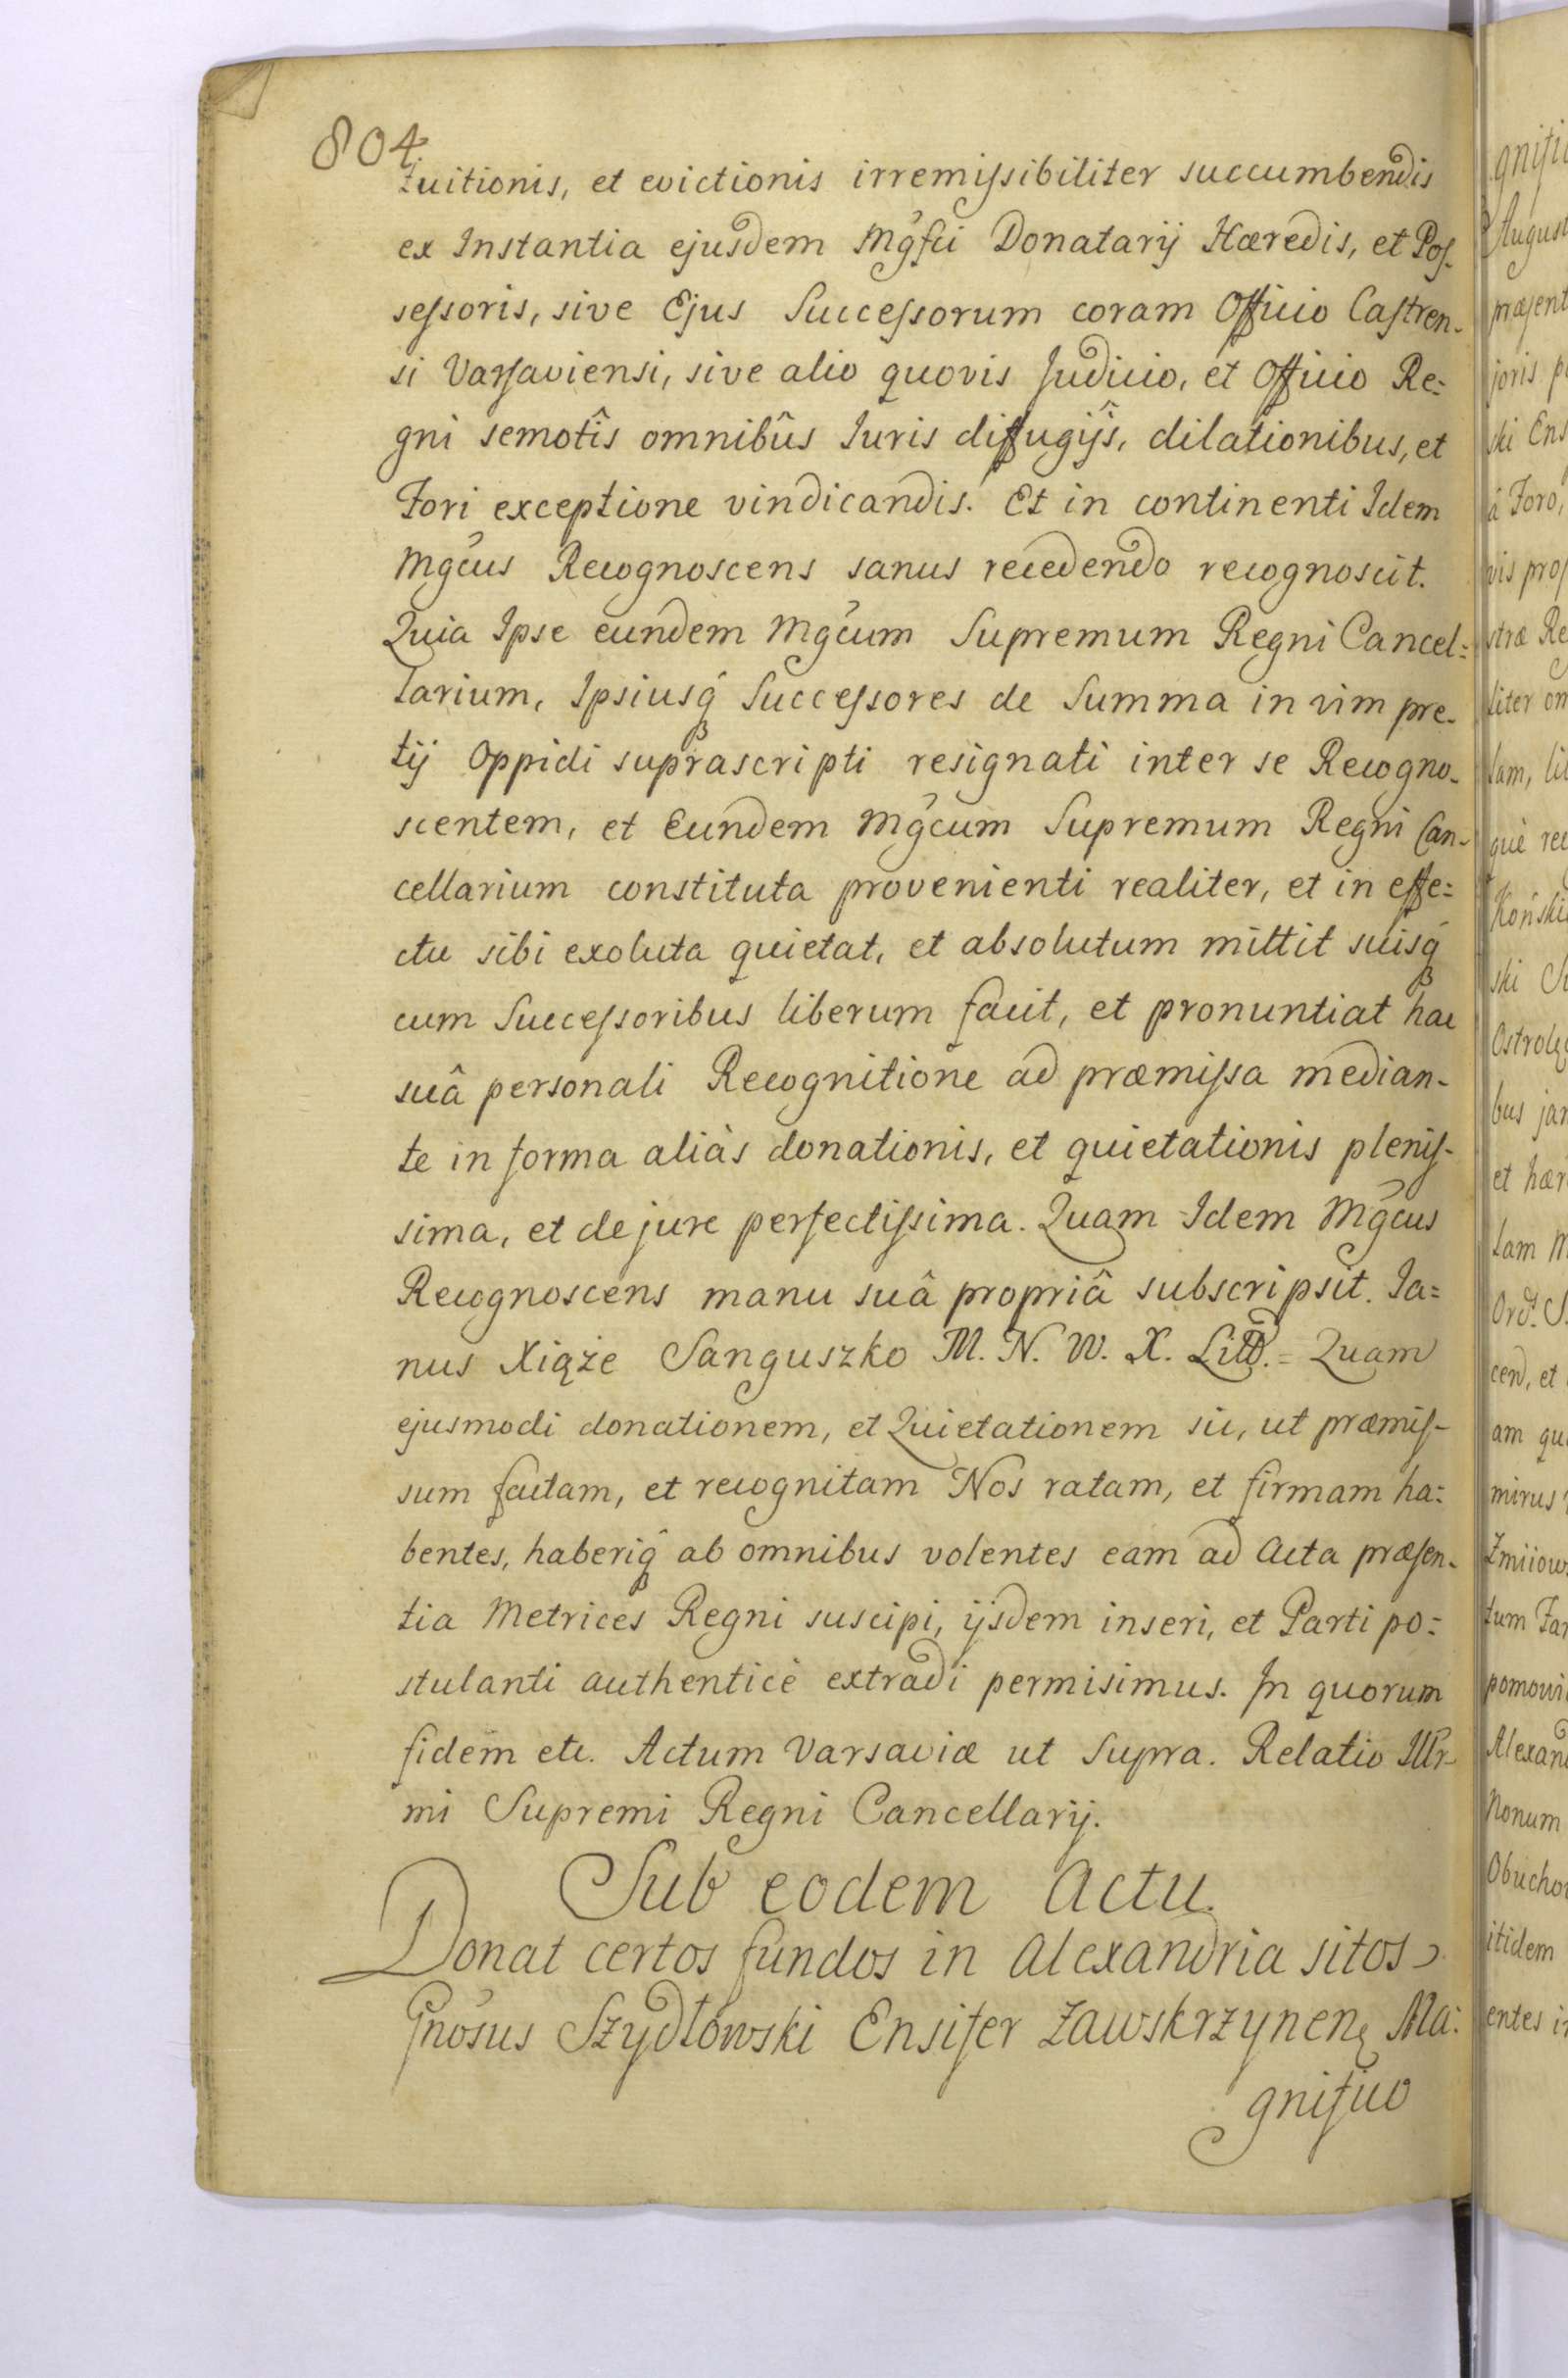 804
tuitionis, et evictionis irremissibiliter succumbendis
ex Instantia ejusdem Mgfci Donatarij Hæredis, et Pos-
sessoris, sive Ejus Successorum coram Officio Castren-
si Varsaviensi, sive alio quovis Judicio, et Officio Re=
gni semotîs omnibûs Iuris diffugijs, dilationibus, et
Fori exceptione vindicandis. Et in continenti Idem
Mgcus Recognoscens sanus recedendo recognoscit.
Quia Ipse eundem Mgcum Supremum Regni Cancel=
larium, Ipsiusq́ Successores de Summa in vim pre-
tij Oppidi suprascripti resignati inter se Recogno-
scentem, et Eundem Mgcum Supremum Regni Can-
cellarium constituta provenienti realiter, et in effe=
ctu sibi exoluta quietat, et absolutum mittit suisq́
cum Successoribus liberum facit, et pronuntiat hac
suâ personali Recognitione ad præmissa median-
te in forma aliàs donationis, et quietationis plenis-
sima, et de jure perfectissima. Quam Idem Mgcus
Recognoscens manu suâ propriâ subscripsit. Ia=
nus Xiąże Sanguszko M. N. W. X. Litt. = Quam
ejusmodi donationem, et Quietationem sic, ut præmis-
sum factam, et recognitam Nos ratam, et firmam ha=
bentes, haberiq́ ab omnibus volentes eam ad Acta præsen-
tia Metrices Regni suscipi, ijsdem inseri, et Parti po=
stulanti authenticè extradi permisimus. In quorum
fidem etc. Actum Varsaviæ ut Supra. Relatio Illr-
mi Supremi Regni Cancellarij.
Sub eodem Actu.
Donat certos fundos in Alexandria sitos
Gnosus Szydłowski Ensifer Zawskrzynen Ma:
gnifico